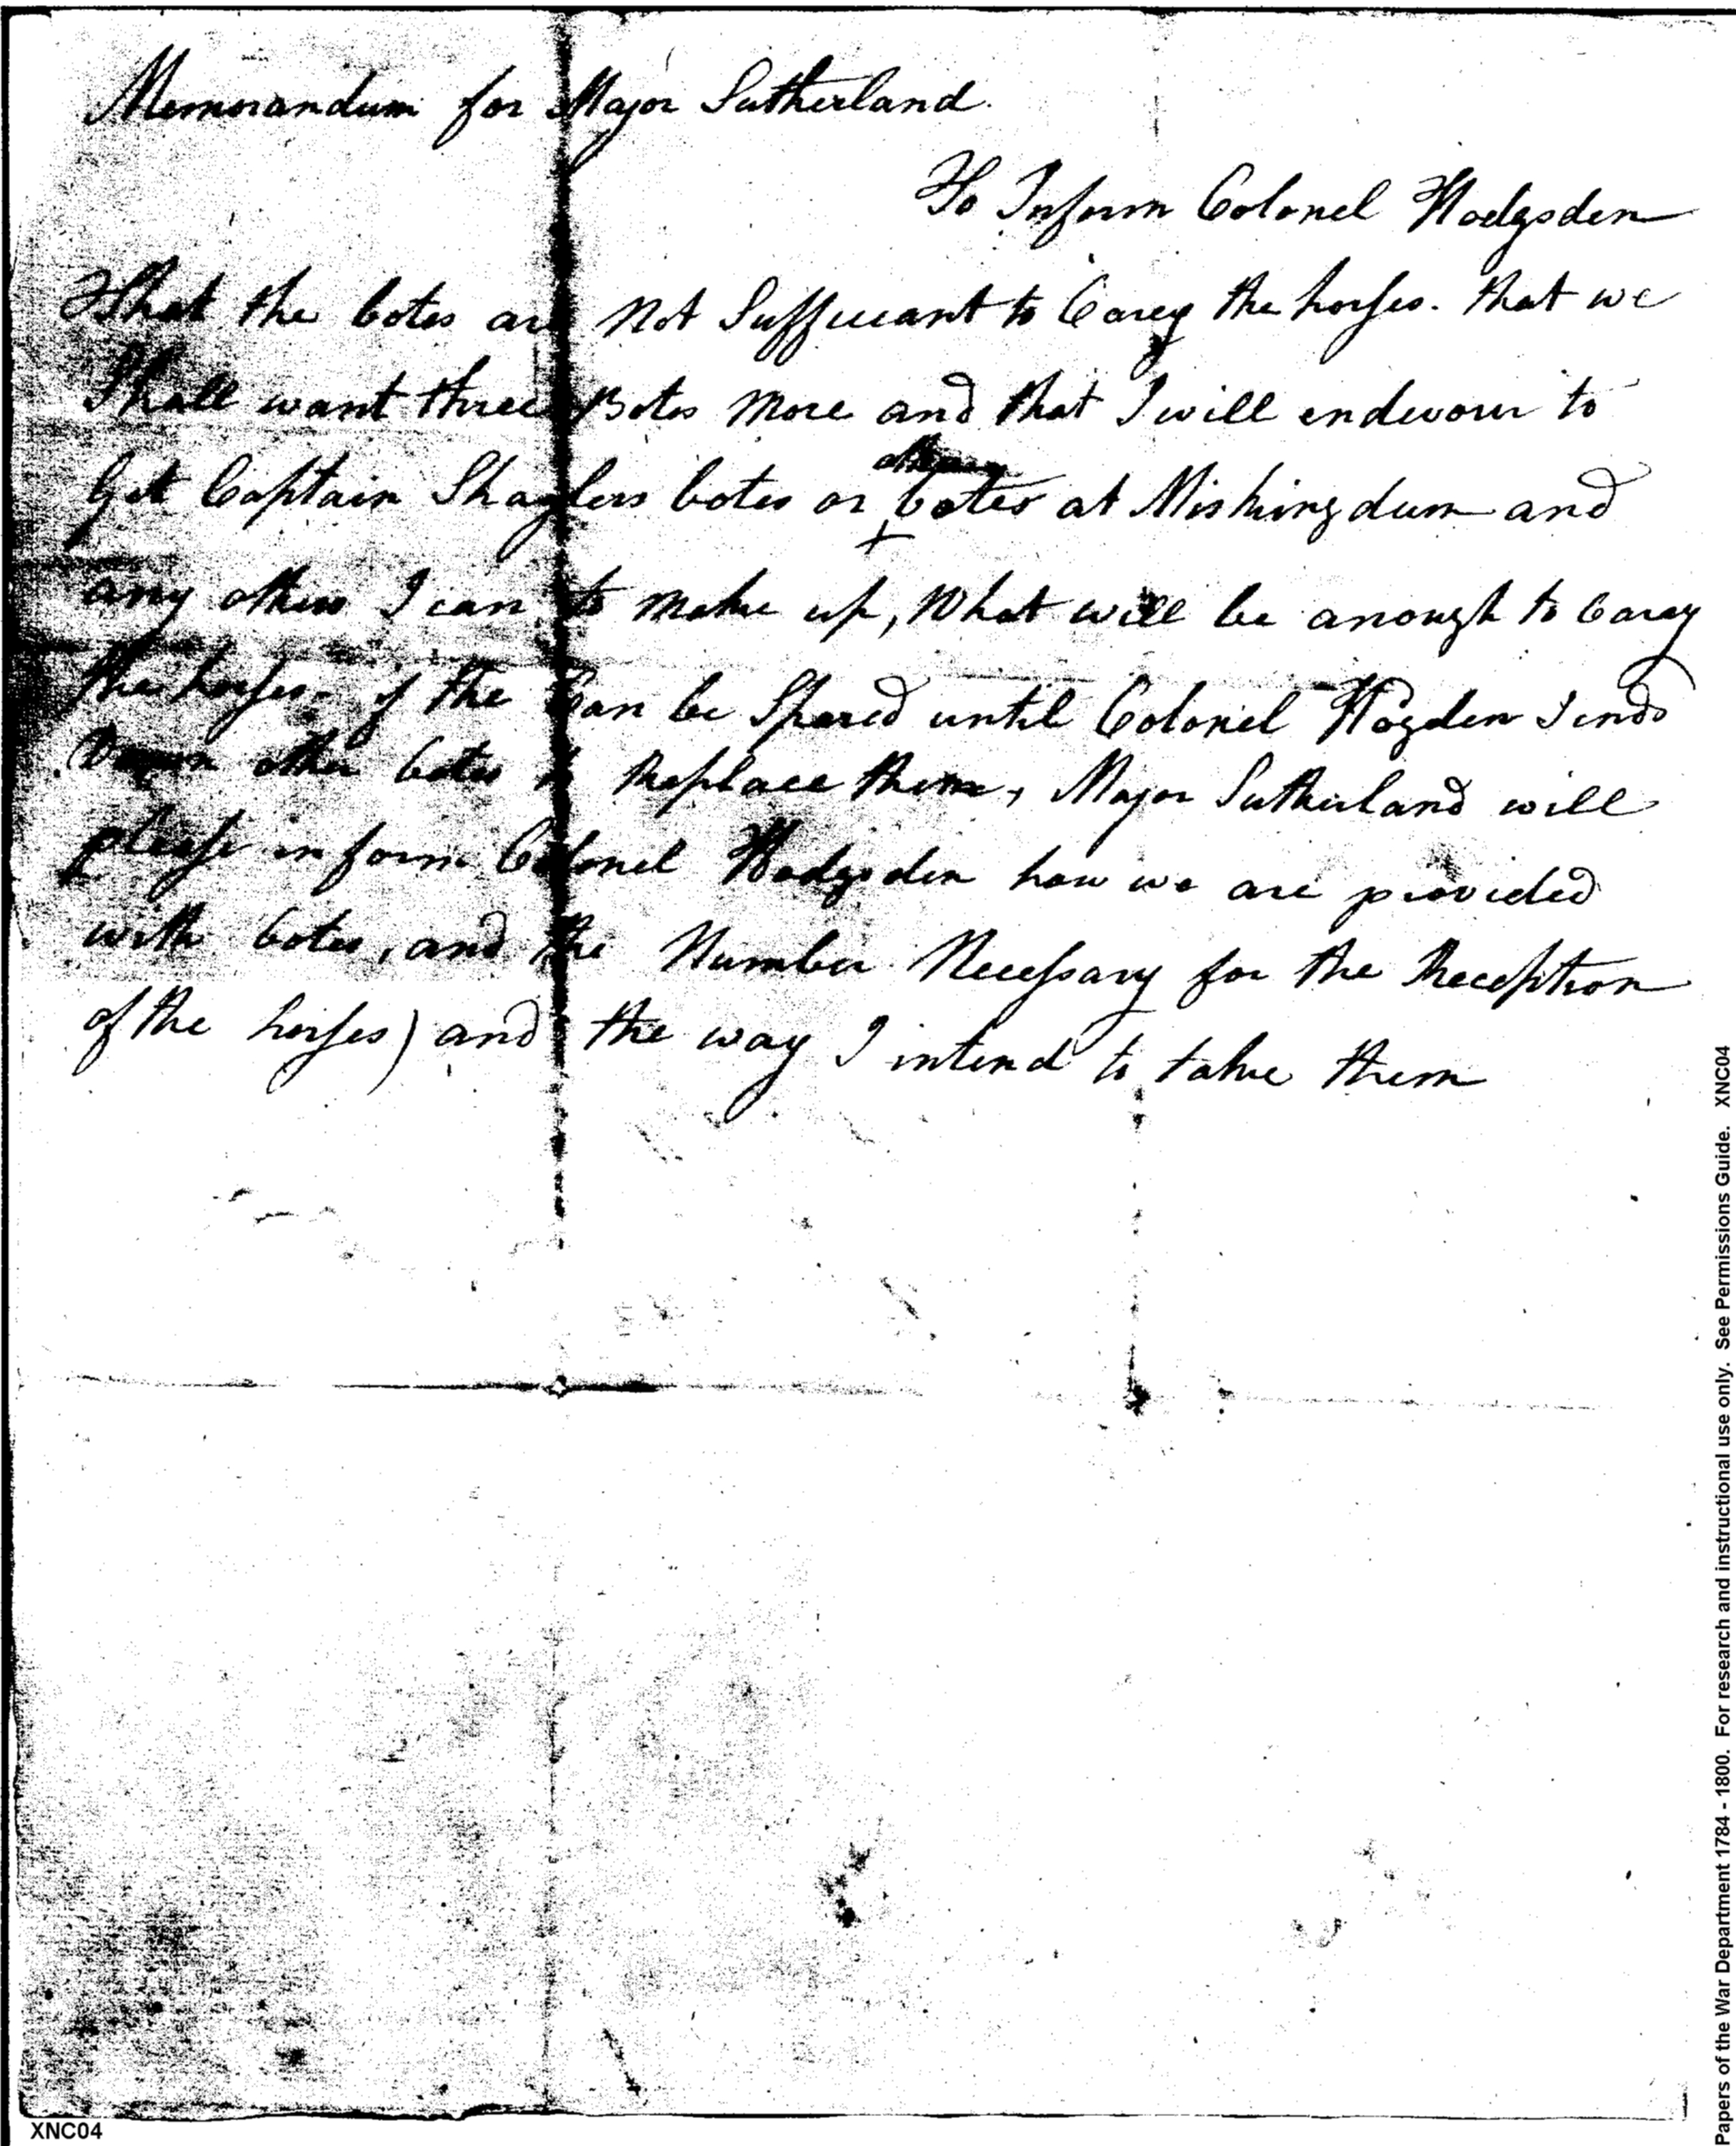 Memorandum for Major Sutherland.
To Inform Colonel Hodgsden
That the botes are not Suffucant to Carey the horses. that we
Shall want three Botes more and that I will endevour to
Get Captain Shaylers botes or botes at Miskingdum and
any others I can to make up, What will be anough to Carey
the horses - if the Can be Spared until Colonel Hogden Sends
Down other botes to Replace them, Major Sutherland will
please inform Colonel Hodgsden how we are provided
with botes, and the Number Necessary for the Reception
of the horses) and the way I intend to take them
XNC04
Papers of the War Department 1784 - 1800. For research and instructional use only. See Permissions Guide. XNC04